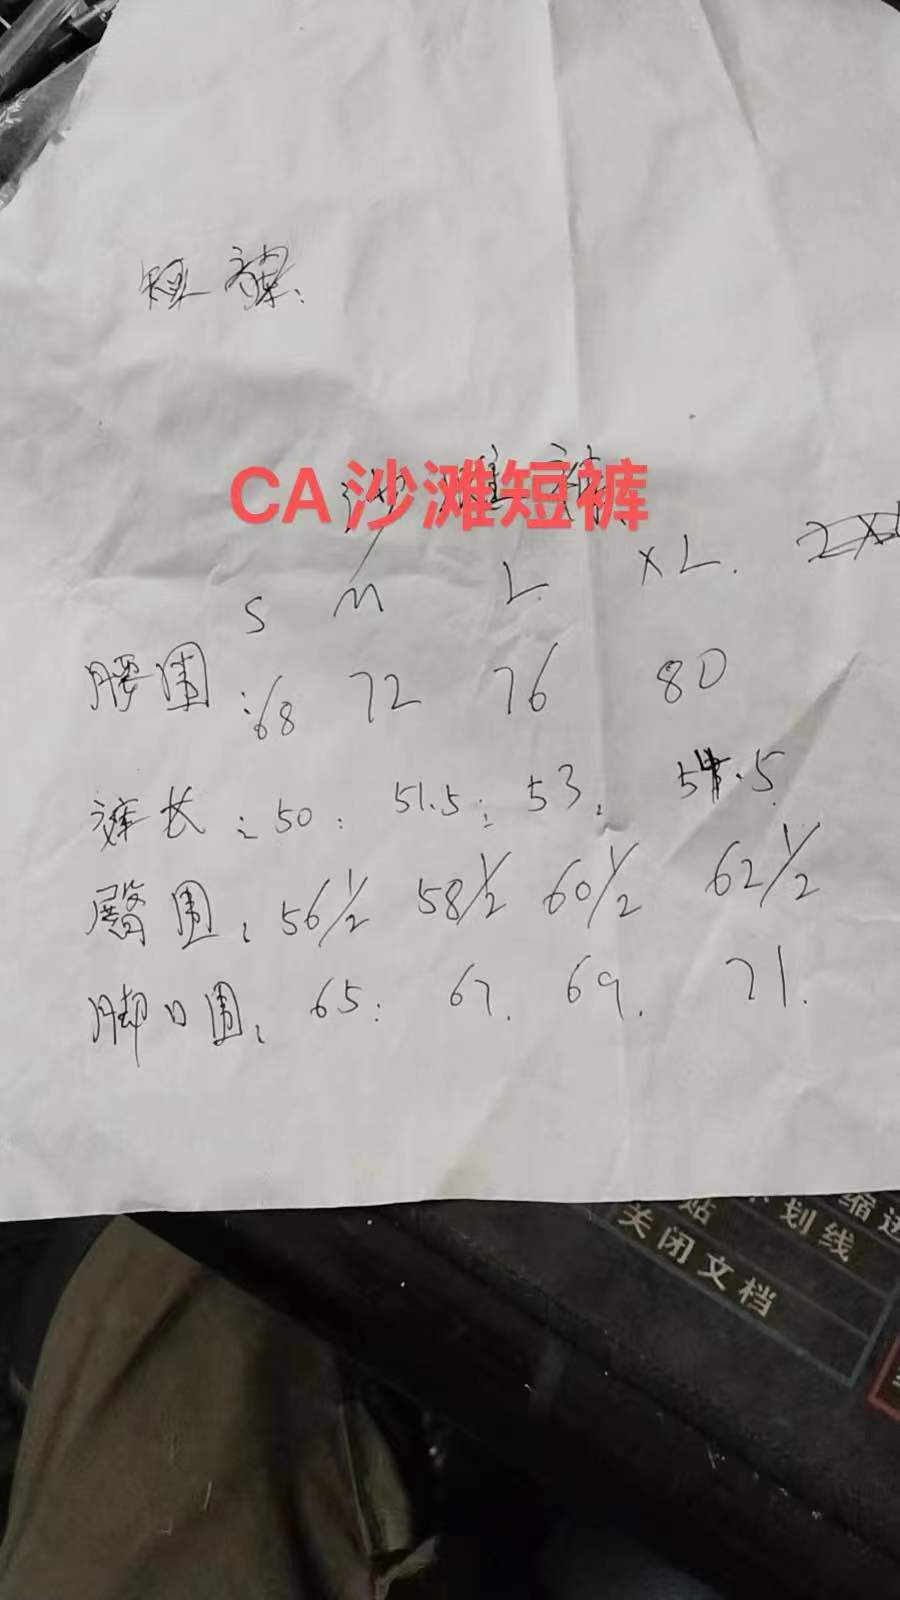 短裤.
CA沙滩短裤
S M L XL. 2XL
腰围:68 72 76 80
裤长:50: 51.5: 53: 54.5
臀围:56 1/2 58 1/2 60 1/2 62 1/2
脚口围:65: 67. 69. 71.
缩进
贴 划线
关闭文档